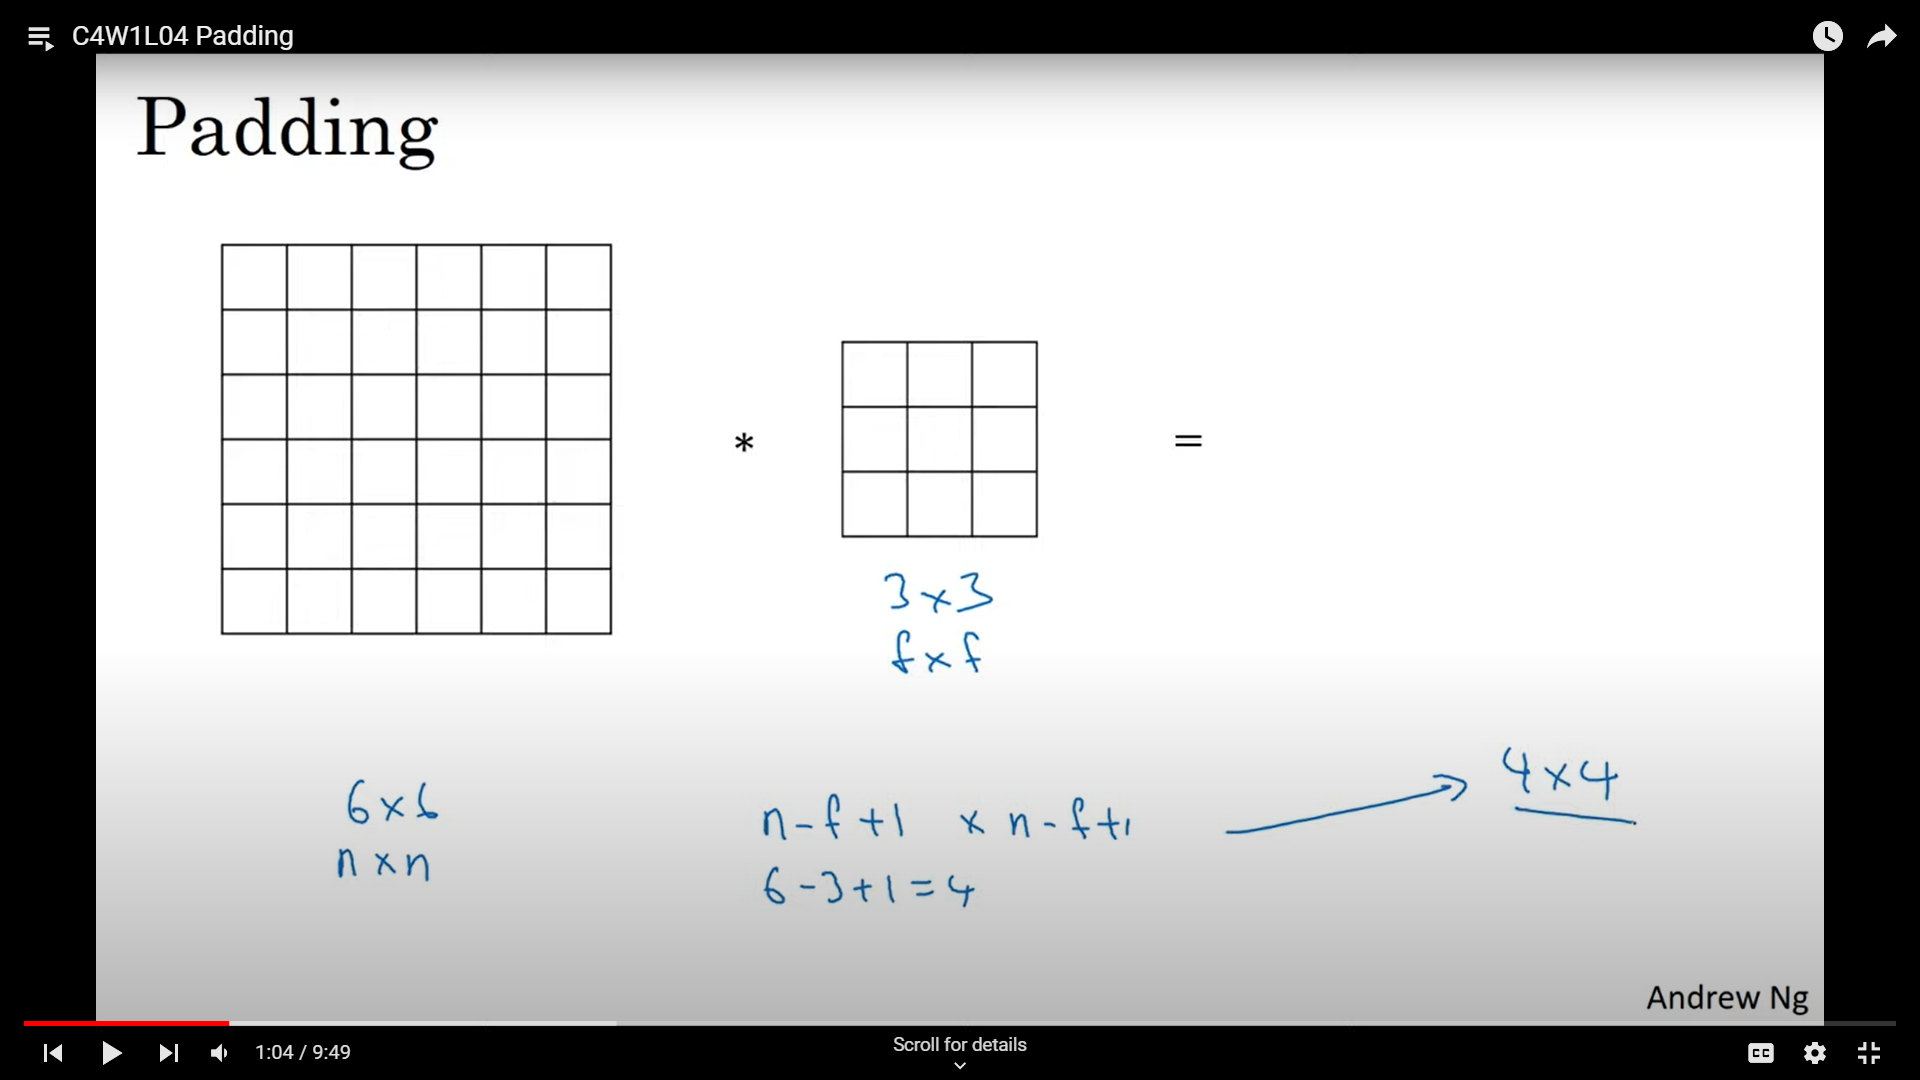 C4W1L04 Padding
Padding
* =
3 x 3
f x f
6 x 6
n x n
n - f + 1 x n - f + 1
6 - 3 + 1 = 4
4 x 4
Andrew Ng
1:04 / 9:49
Scroll for details
CC